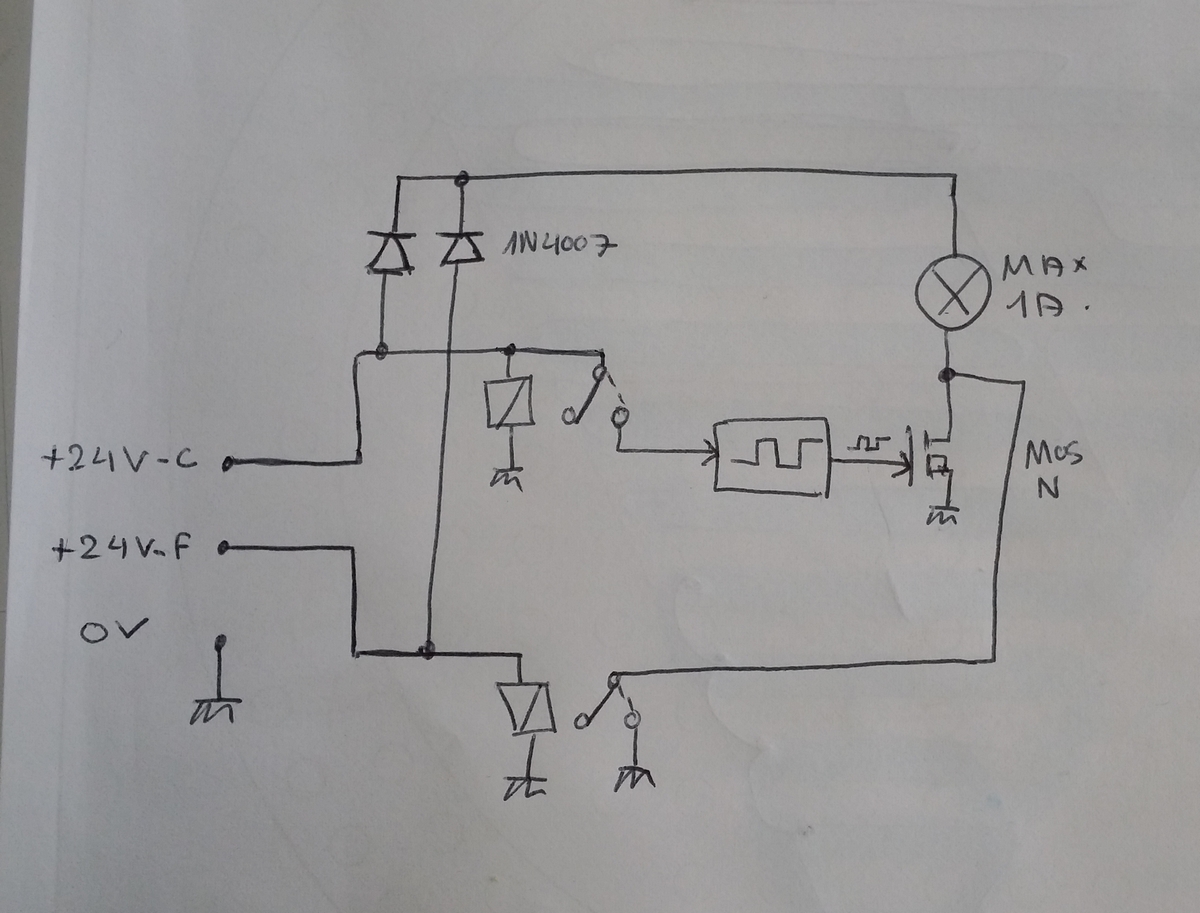 1N4007
MAX
1A.
+24V-C
MOS
N
+24V-F
0V